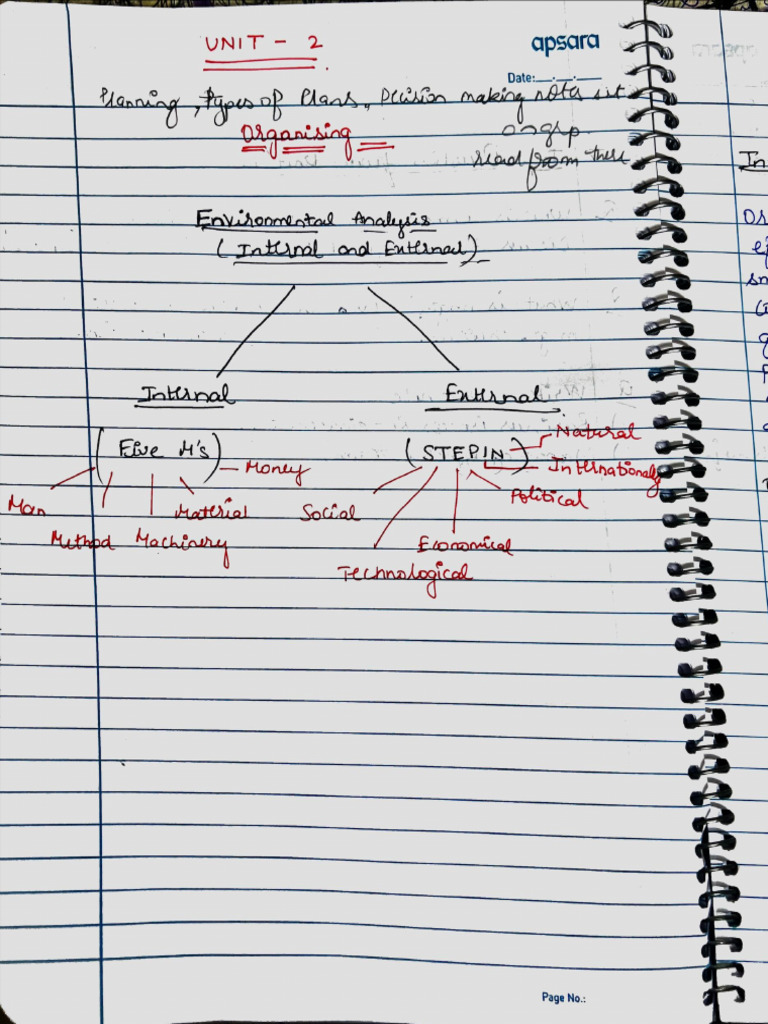 UNIT - 2
apsara
Date:__.__.____
Planning, Types of Plans, Decision making notes sit
Organising
on grp
read from there
Environmental Analysis
(Internal and External)
Internal
External
(Five M's)
Money
(STEPIN)
Natural
Internationaly
Political
Man
Material
Social
Method
Machinery
Economical
Technological
Page No.:
In